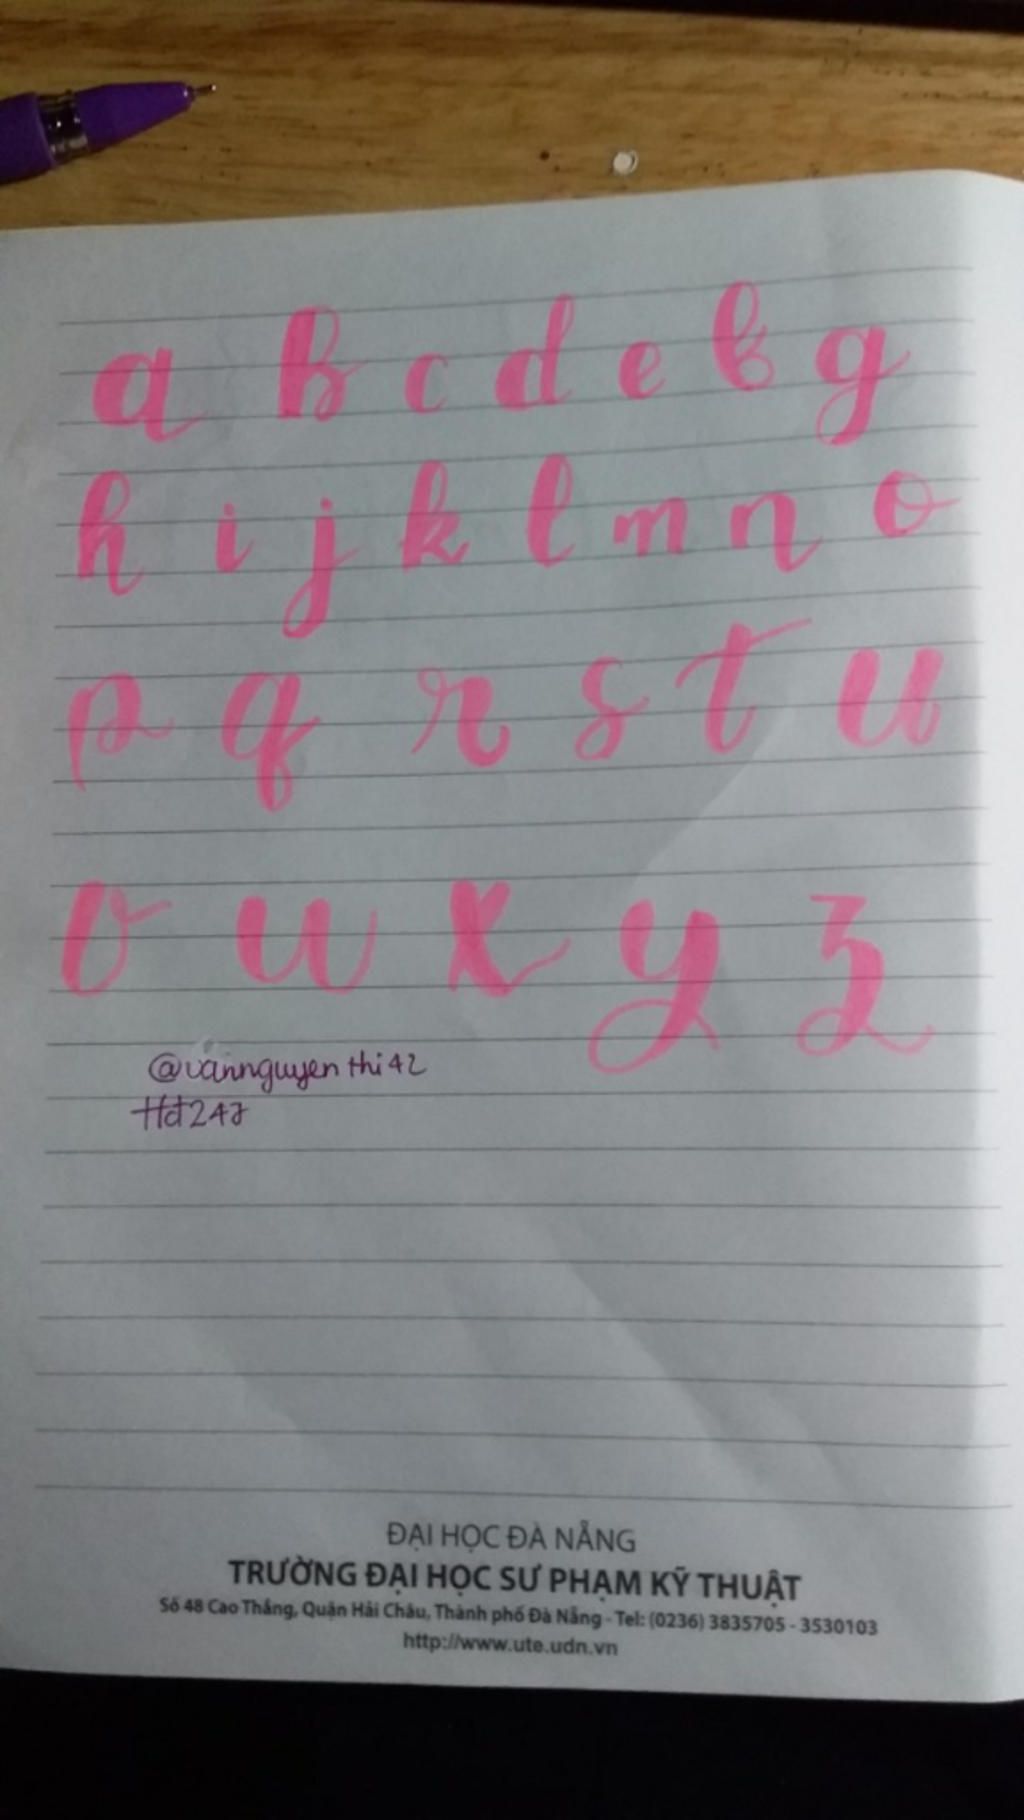 a b c d e f g
h i j k l m n o
p q r s t u
v w x y z
@vannguyenthi42
Hd247
ĐẠI HỌC ĐÀ NẴNG
TRƯỜNG ĐẠI HỌC SƯ PHẠM KỸ THUẬT
Số 48 Cao Thắng, Quận Hải Châu, Thành phố Đà Nẵng - Tel: (0236) 3835705 - 3530103
http://www.ute.udn.vn